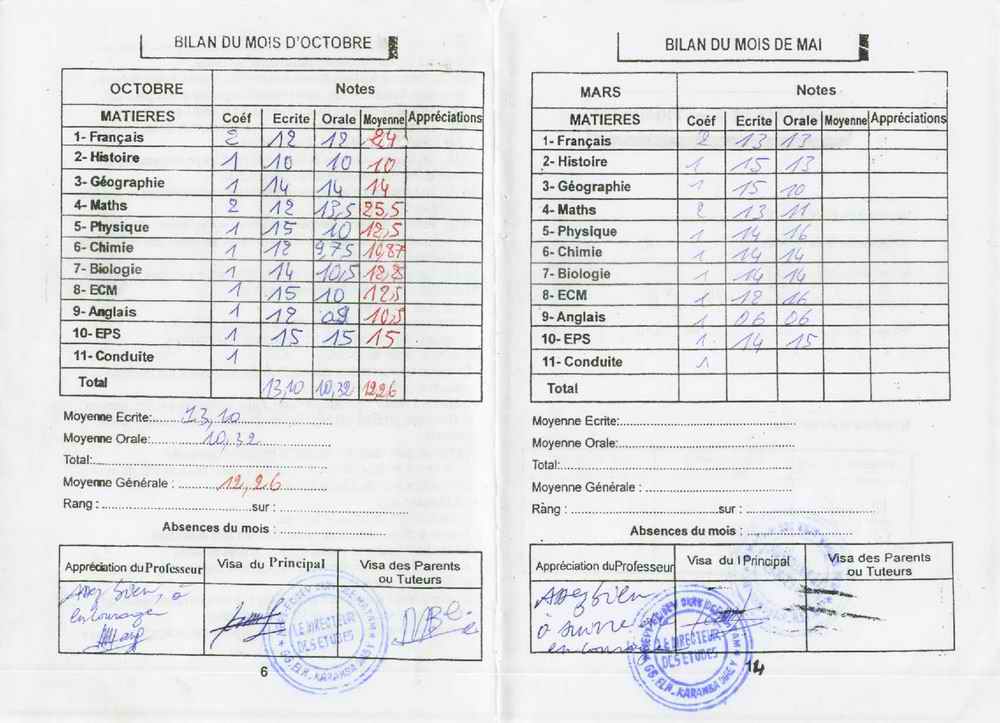 BILAN DU MOIS D'OCTOBRE
OCTOBRE Notes
MATIERES Coéf Ecrite Orale Moyenne Appréciations
1- Français 2 12 12 24
2- Histoire 1 10 10 10
3- Géographie 1 14 14 14
4- Maths 2 12 13,5 25,5
5- Physique 1 15 10 12,5
6- Chimie 1 12 9,75 10,87
7- Biologie 1 14 10,5 12,25
8- ECM 1 15 10 12,5
9- Anglais 1 12 09 10,5
10- EPS 1 15 15 15
11- Conduite 1
Total 13,10 10,32 12,26
Moyenne Ecrite: 13,10
Moyenne Orale: 10,32
Total:
Moyenne Générale : 12,26
Rang : sur :
Absences du mois :
Appréciation du Professeur Visa du Principal Visa des Parents ou Tuteurs
Assez bien, à
encourager
LE DIRECTEUR
DES ETUDES
6
BILAN DU MOIS DE MAI
MARS Notes
MATIERES Coéf Ecrite Orale Moyenne Appréciations
1- Français 2 13 13
2- Histoire 1 15 13
3- Géographie 1 15 10
4- Maths 2 13 11
5- Physique 1 14 16
6- Chimie 1 14 14
7- Biologie 1 14 14
8- ECM 1 12 16
9- Anglais 1 06 06
10- EPS 1 14 15
11- Conduite 1
Total
Moyenne Ecrite:
Moyenne Orale:
Total:
Moyenne Générale :
Rang : sur :
Absences du mois :
Appréciation du Professeur Visa du Principal Visa des Parents ou Tuteurs
Assez bien
à suivre
LE DIRECTEUR
DES ETUDES
14